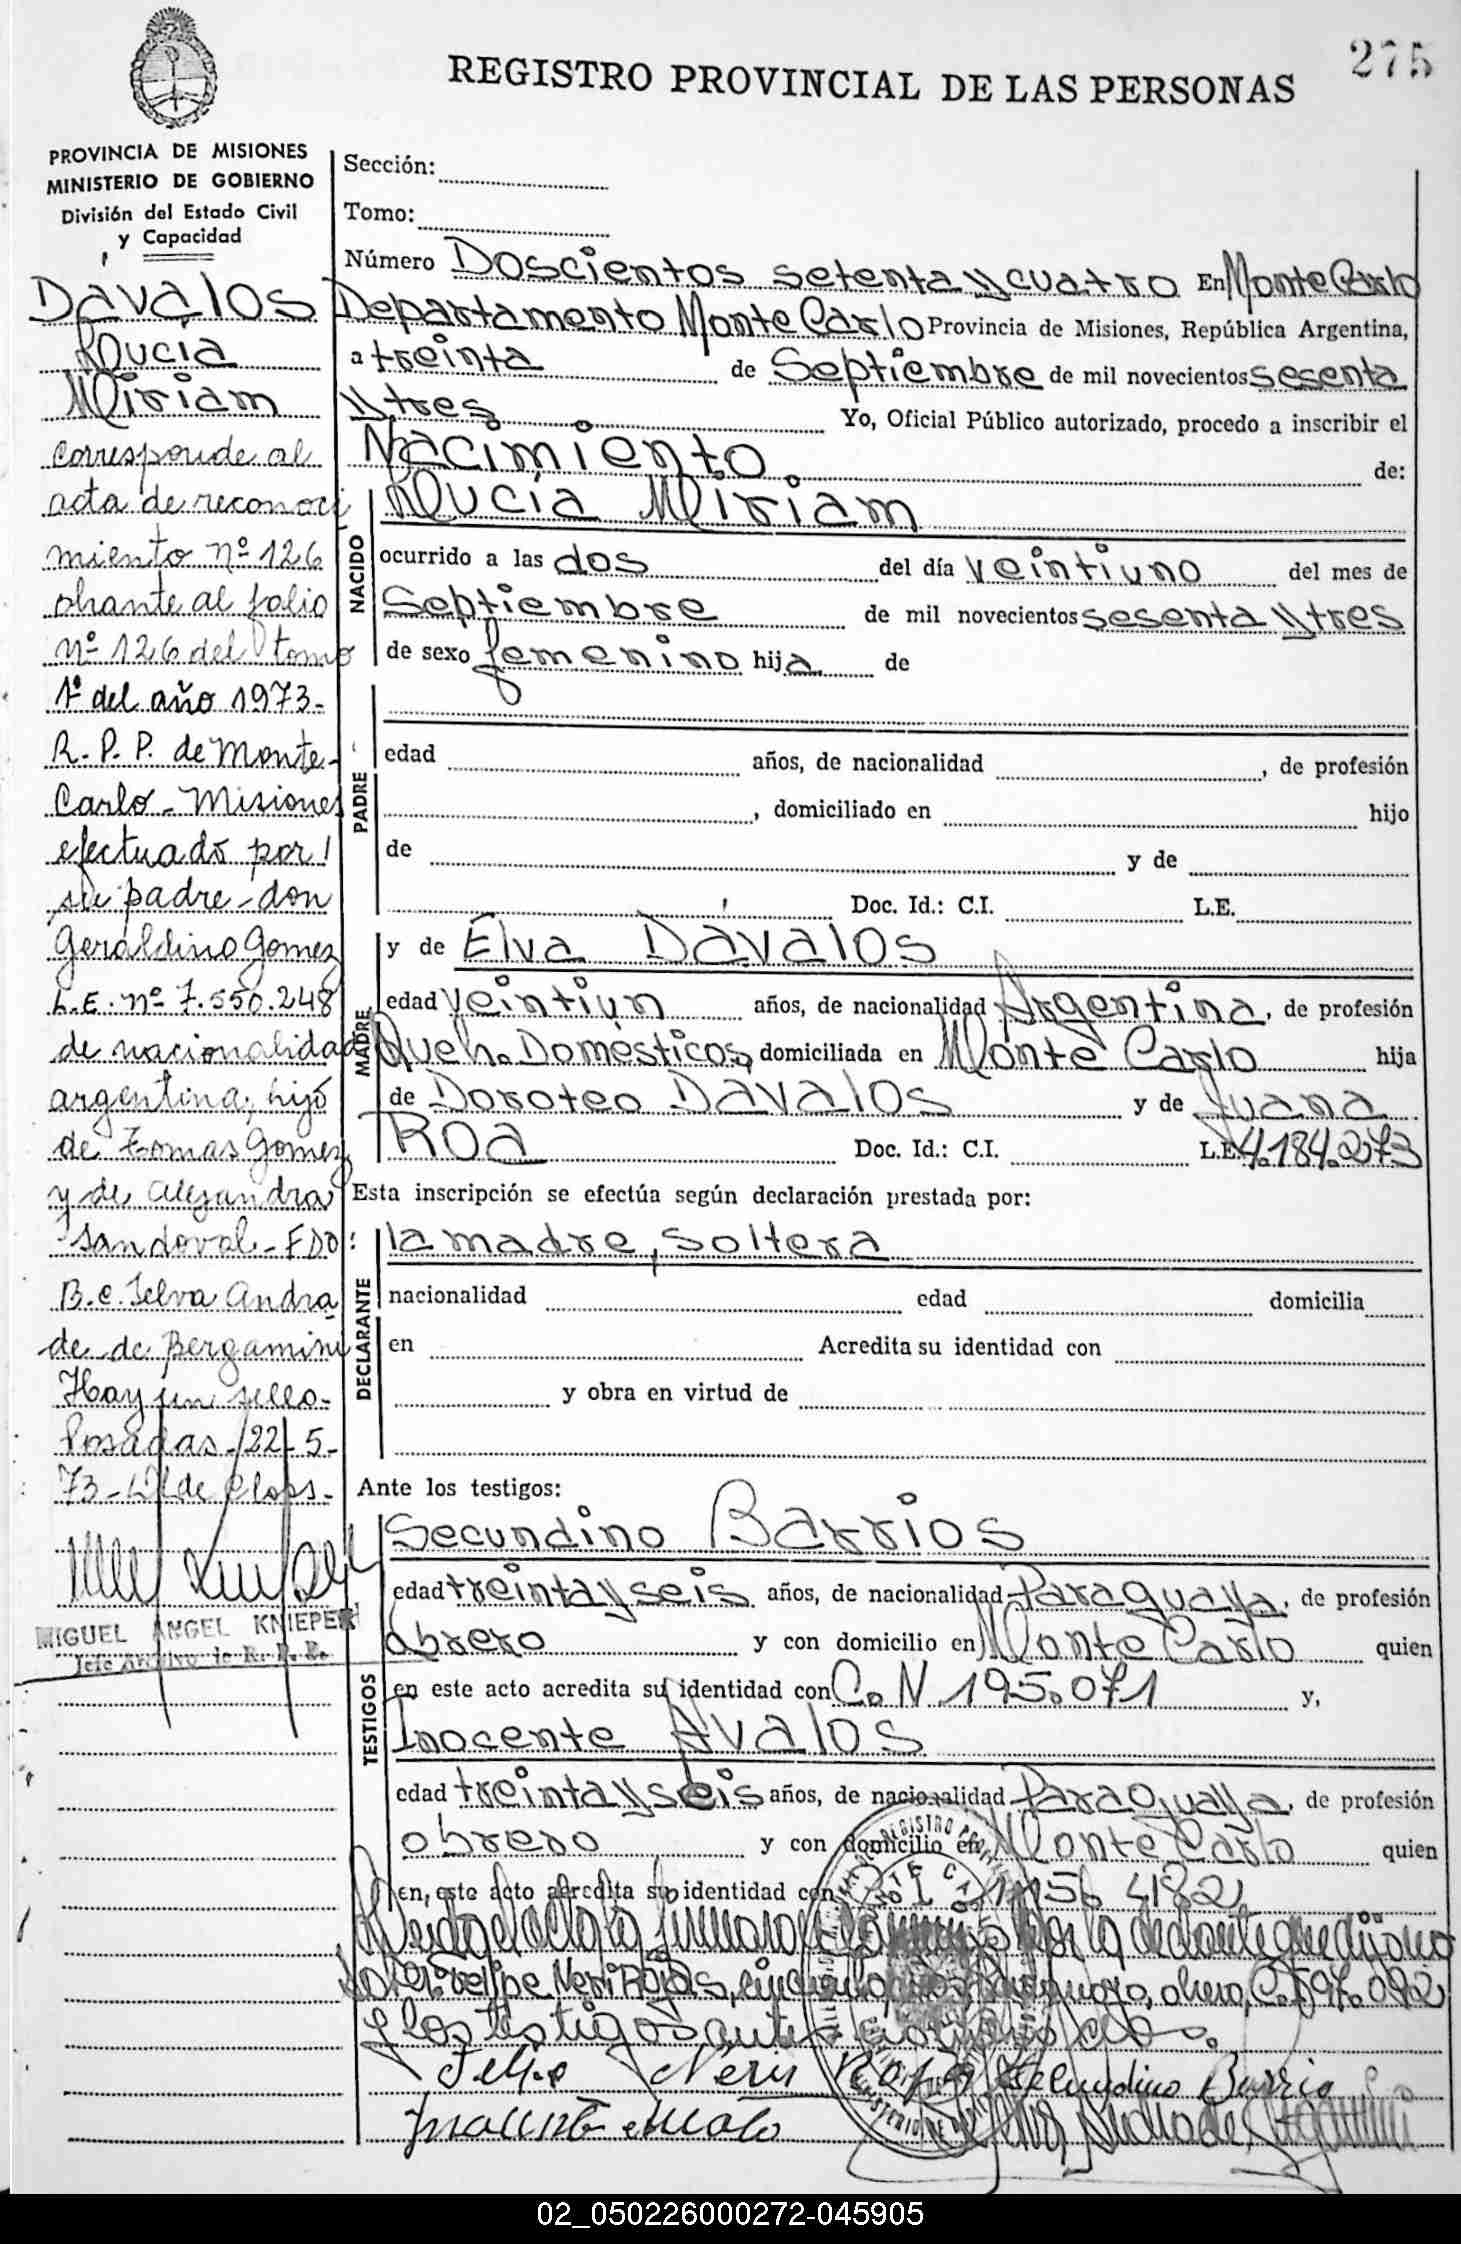 275
REGISTRO PROVINCIAL DE LAS PERSONAS
PROVINCIA DE MISIONES
MINISTERIO DE GOBIERNO
División del Estado Civil
y Capacidad
Dávalos
Lucía
Miriam
Corresponde al
acta de reconoci
miento nº 126
obrante al folio
nº 126 del tomo
1º del año 1973-
R. P. P. de Monte-
Carlo - Misiones
efectuado por
su padre don
Geraldino Gomez
L.E. nº 7.550.248
de nacionalidad
argentina, hijo
de Tomas Gomez
y de Alejandra
Sandoval - FDO:
B.C. Selva Andra
de de Bergamini
Hay un sello-
Posadas - 22-5-
73-
MIGUEL ANGEL KNIEPER
Jefe Archivo de R. P. P.
Sección:
Tomo:
Número Doscientos setenta y cuatro En Monte Carlo
Departamento Monte Carlo Provincia de Misiones, República Argentina,
a treinta de Septiembre de mil novecientos sesenta
y tres Yo, Oficial Público autorizado, procedo a inscribir el
Nacimiento de:
NACIDO
Lucía Miriam
ocurrido a las dos del día veintiuno del mes de
Septiembre de mil novecientos sesenta y tres
de sexo femenino hija de
PADRE
edad años, de nacionalidad , de profesión
, domiciliado en hijo
de y de
Doc. Id.: C.I. L.E.
MADRE
y de Elva Dávalos
edad veintiun años, de nacionalidad Argentina, de profesión
Queh. Domésticos, domiciliada en Monte Carlo hija
de Doroteo Dávalos y de Juana
Roa Doc. Id.: C.I. L.E. 4.184.273
Esta inscripción se efectúa según declaración prestada por:
DECLARANTE
la madre, soltera
nacionalidad edad domicilia
en Acredita su identidad con
y obra en virtud de
Ante los testigos:
TESTIGOS
Secundino Barrios
edad treinta y seis años, de nacionalidad Paraguaya, de profesión
obrero y con domicilio en Monte Carlo quien
en este acto acredita su identidad con C. N 195.071 y,
Inocente Avalos
edad treinta y seis años, de nacionalidad Paraguaya, de profesión
obrero y con domicilio en Monte Carlo quien
en este acto acredita su identidad con
Leida el acta la firmaron conmigo por la declarante que dijo no
saber: Felipe Neri Rojas, obrero, C.
y los testigos antes
Felipe Neri Rojas Secundino Barrio
02_050226000272-045905